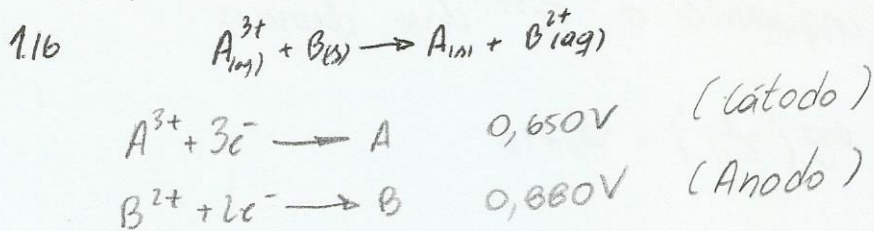 1.16 A³⁺(aq) + B(s) → A(s) + B²⁺(aq)
A³⁺ + 3e⁻ → A 0,650V (Cátodo)
B²⁺ + 2e⁻ → B 0,880V (Anodo)